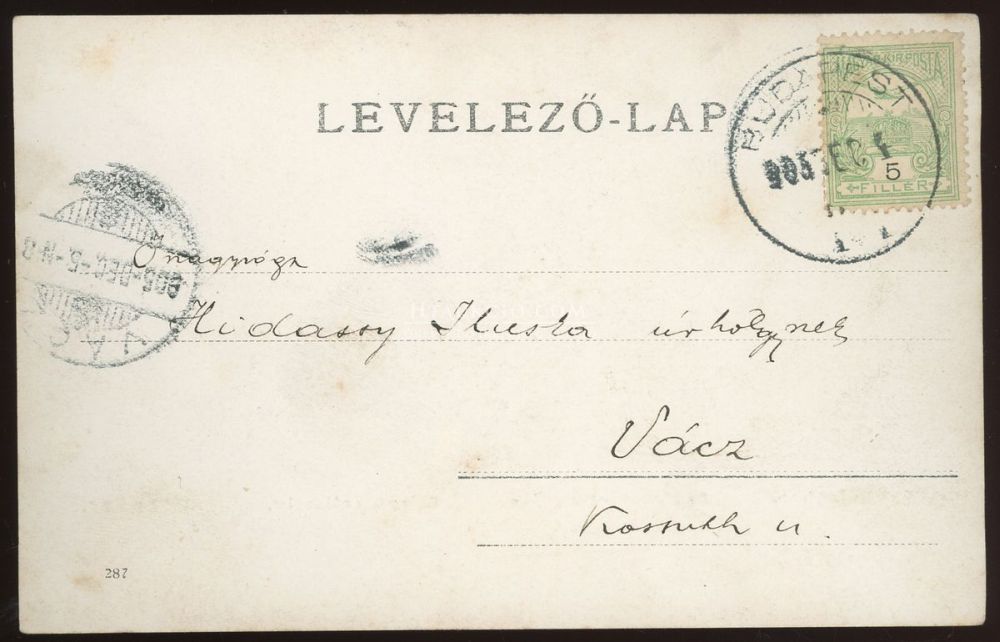 LEVELEZŐ-LAP
BUDAPEST
905 DEC
KIR. POSTA
5
FILLÉR
905-DEC.-5.-N 8
VÁC
Őnagysága
Hidassy Iluska úrhölgynek
Vácz
Kossuth u.
287